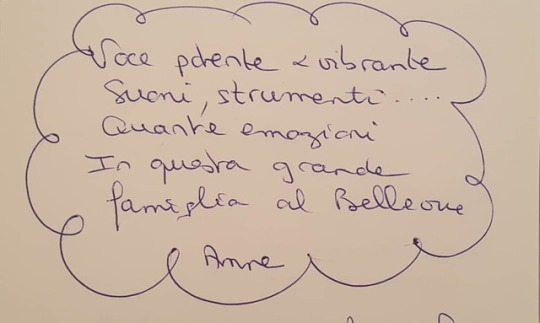 Voce potente e vibrante
Suoni, strumenti.....
Quante emozioni
In questa grande
famiglia al Belleone
Anne